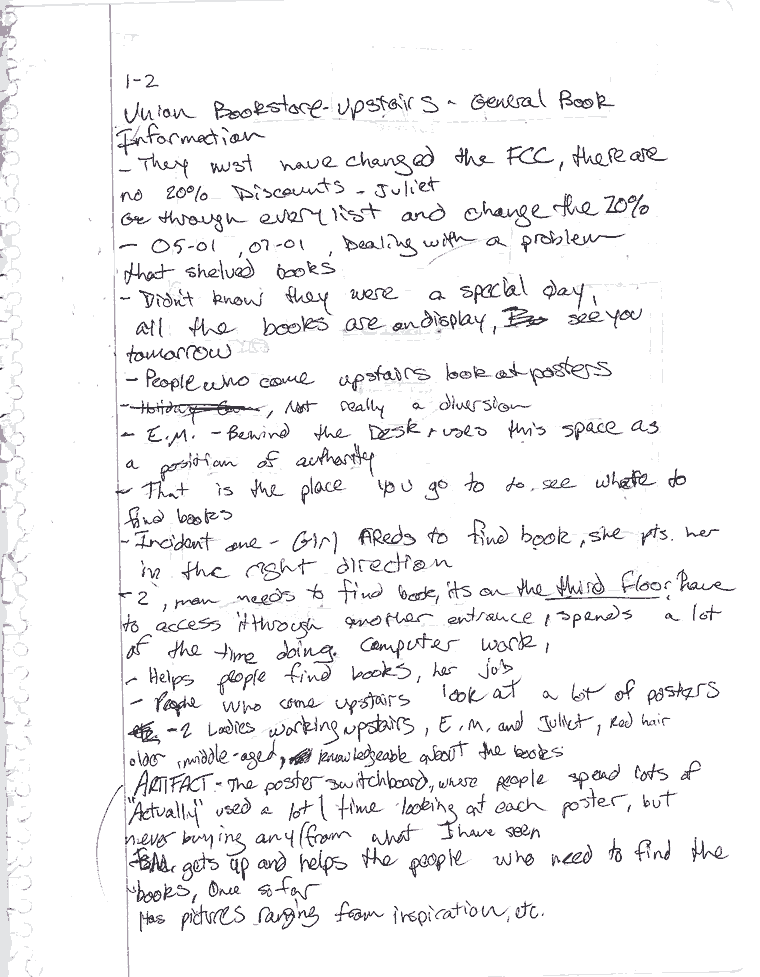 1-2
Union Bookstore-Upstairs - General Book
Information
- They must have changed the FCC, there are
no 20% Discounts - Juliet
Go through every list and change the 20%
- 05-01, 07-01, Dealing with a problem
that shelved books
- Didn't know they were a special day,
all the books are on display, see you
tomorrow
- People who come upstairs look at posters
- , Not really a diversion
- E.M. - Behind the Desk, uses this space as
a position of authority
- That is the place you go to to see where to
find books
- Incident one - Girl needs to find book, she pts. her
in the right direction
- 2, man needs to find book, its on the third floor, have
to access it through another entrance, spends a lot
of the time doing. Computer work,
- Helps people find books, her job
- People who come upstairs look at a lot of posters
- 2 Ladies working upstairs, E.M. and Juliet, Red hair
older, middle-aged, knowledgeable about the books
ARTIFACT - The poster switchboard, where people spend lots of
"Actually" used a lot | time looking at each poster, but
never buying any/from what I have seen
- E.M. gets up and helps the people who need to find the
books, Once so far
Has pictures ranging from inspiration, etc.